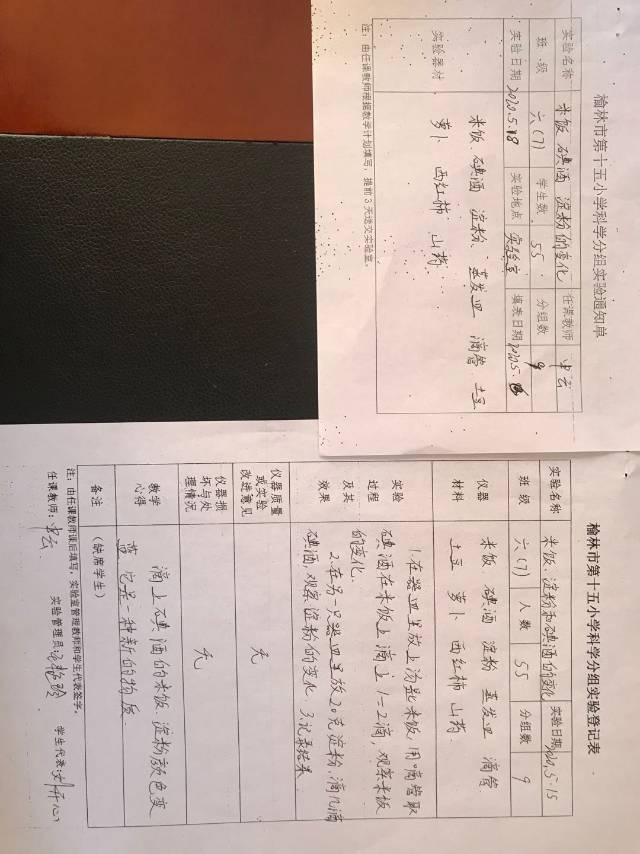 榆林市第十五小学科学分组实验通知单
实验名称 米饭、碘酒、淀粉的变化 任课教师
班级 六(7) 学生数 55 分组数 9
实验日期 2020.5.18 实验地点 实验室 填表日期 2020.5.
实验器材 米饭、碘酒 淀粉 蒸发皿 滴管 土豆
萝卜 西红柿 山药
注:由任课教师根据教学计划填写,提前3天送交实验室。
榆林市第十五小学科学分组实验登记表
实验名称 米饭、淀粉和碘酒的变化 实验日期 5.15
班级 六(7) 人数 55 分组数 9
仪器材料 米饭 碘酒 淀粉 蒸发皿 滴管
土豆 萝卜 西红柿 山药
实验过程及其效果 1.在器皿里放上米饭,用滴管取
碘酒在米饭上滴上1-2滴,观察米饭
的变化.
2.在另一只器皿里放20克淀粉,滴几滴
碘酒,观察淀粉的变化 3.记录结果
仪器质量或实验改进意见 无
仪器损坏与处理情况 无
教学心得 滴上碘酒的米饭 淀粉颜色变
蓝 它是一种新的物质
备注 (缺席学生)
注:由任课教师课后填写,实验室管理教师和学生代表签字。
任课教师: 实验管理员: 学生代表: